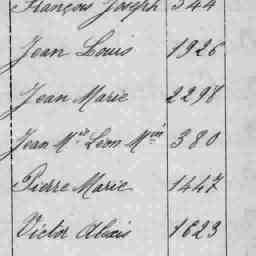 François Joseph 344
Jean Louis 1926
Jean Marie 2298
Jean Mie Léon Min 380
Pierre Marie 1447
Victor Alexis 1623